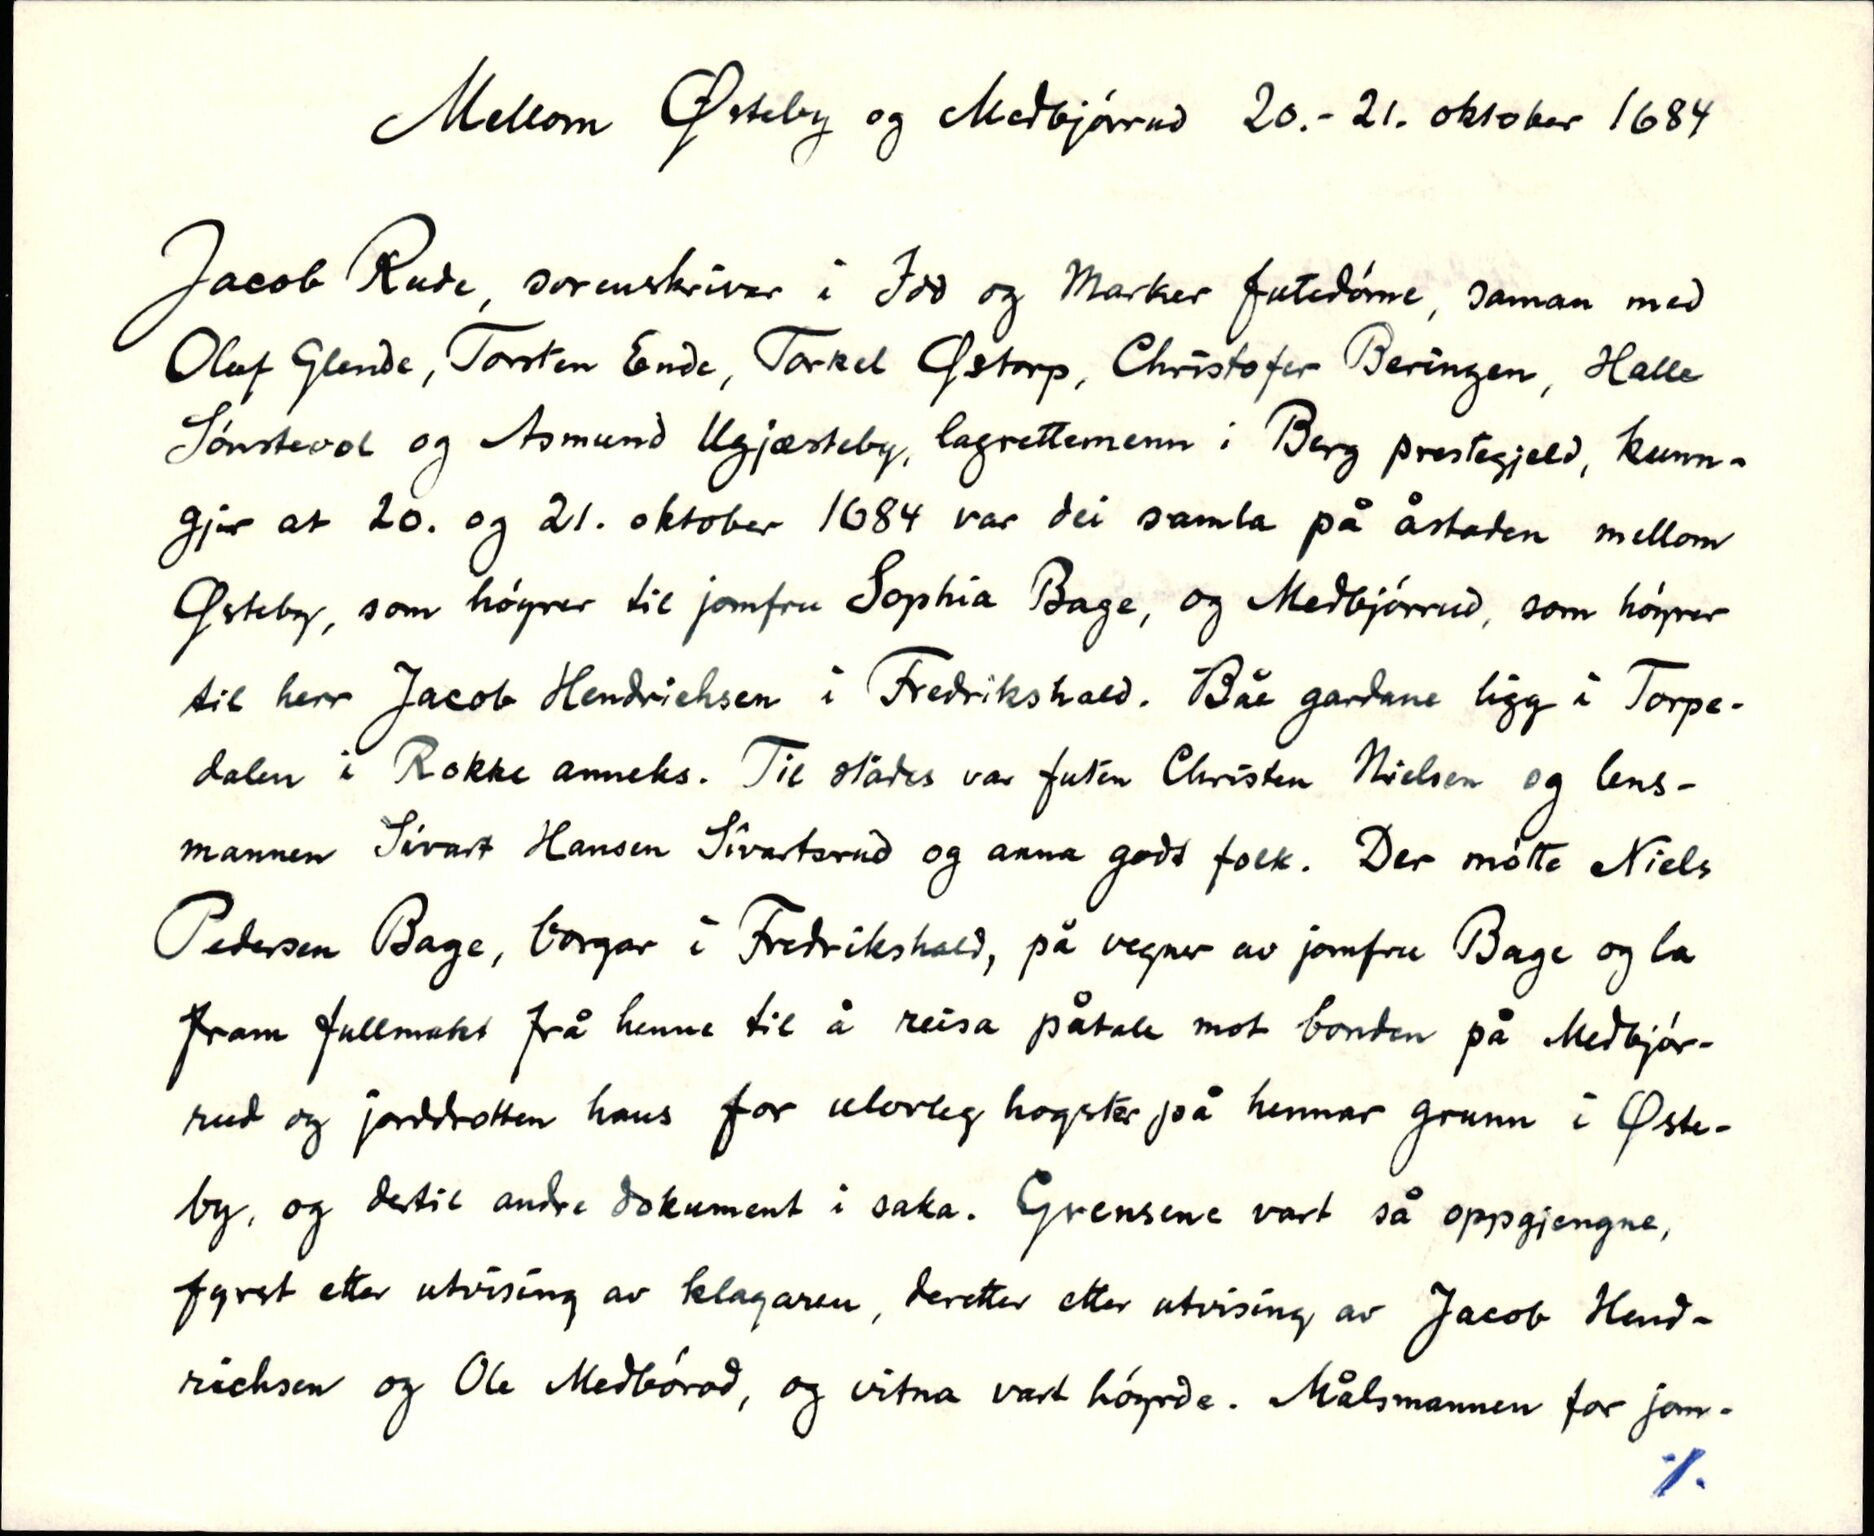 Mellom Østeby og Medbjórrud 20.- 21. oktober 1684
Jacob Rude, sorenskrivar i Idd og Marker futedóme, saman med
Oluf Glende, Torsten Ende, Torkel Østorp, Christofer Beringen, Halle
Sónstevol og Asmund Ugjæsteby, lagrettemenn i Berg prestegjeld, kunn-
gjer at 20. og 21. oktober 1684 var dei samla på åstaden mellom
Østeby, som hóyrer til jomfru Sophia Bage, og Medbjórrud, som hóyrer
til herr Jacob Hendrichsen i Fredrikshald. Båe gardane ligg i Torpe-
dalen i Rokke anneks. Til stades var futen Christen Nielsen og lens-
mannen Sivart Hansen Sivartsrud og anna godt folk. Der mótte Niels
Pedersen Bage, borgar i Fredrikshald, på vegner av jomfru Bage og la
fram fullmakt frå henne til å reisa påtale mot bonden på Medbjór-
rud og jorddrotten hans for ulovleg hogster på hennar grunn i Øste-
by, og dertil andre dokument i saka. Grensene vart så oppgjengne,
fyrst etter utvising av klagaren, deretter etter utvising av Jacob Hend-
richsen og Ole Medbórod, og vitna vart hóyrde. Målsmannen for jom-
·/.